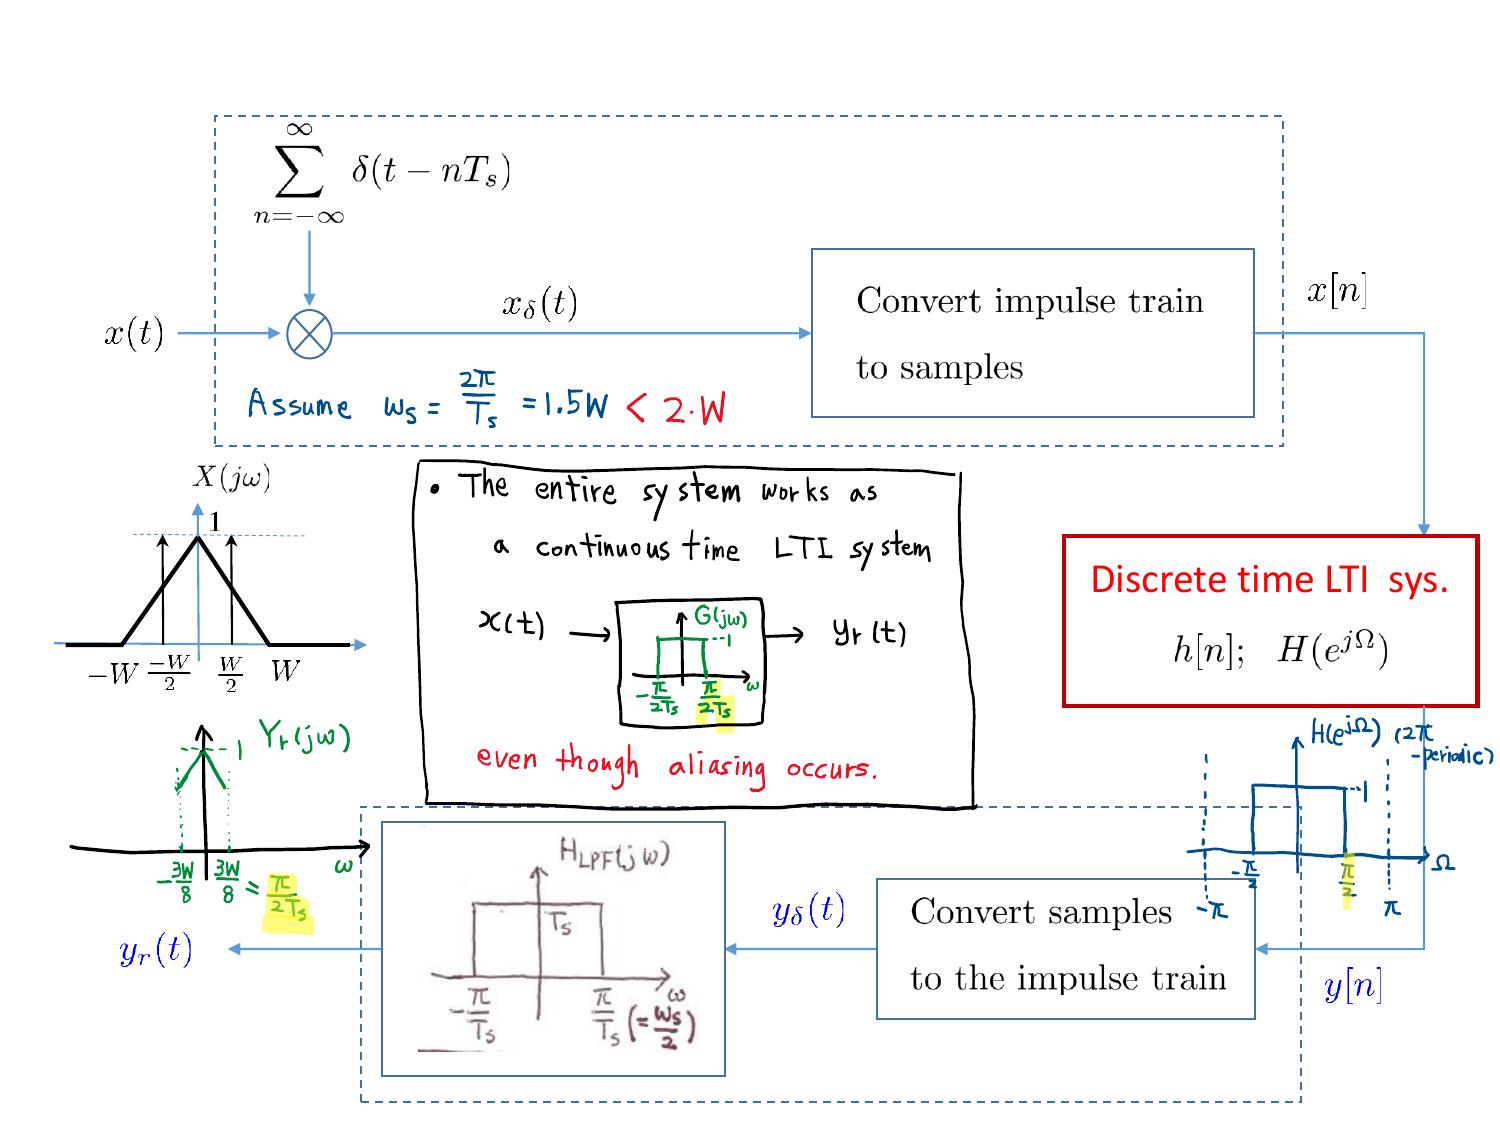 ∞
∑ δ(t − nT_s)
n=−∞
x(t)
x_δ(t)
Convert impulse train
to samples
x[n]
Assume ω_s = 2π/T_s = 1.5W < 2·W
X(jω)
1
−W −W/2 W/2 W
• The entire system works as
a continuous time LTI system
x(t) → G(jω) → y_r(t)
1
−π/2T_s π/2T_s ω
even though aliasing occurs.
Discrete time LTI sys.
h[n]; H(e^{jΩ})
H(e^{jΩ}) (2π
-periodic)
1
−π −π/2 π/2 π Ω
Y_r(jω)
1
−3W/8 3W/8 = π/2T_s ω
y_r(t)
H_LPF(jω)
T_s
−π/T_s π/T_s (=ω_s/2) ω
y_δ(t)
Convert samples
to the impulse train
y[n]